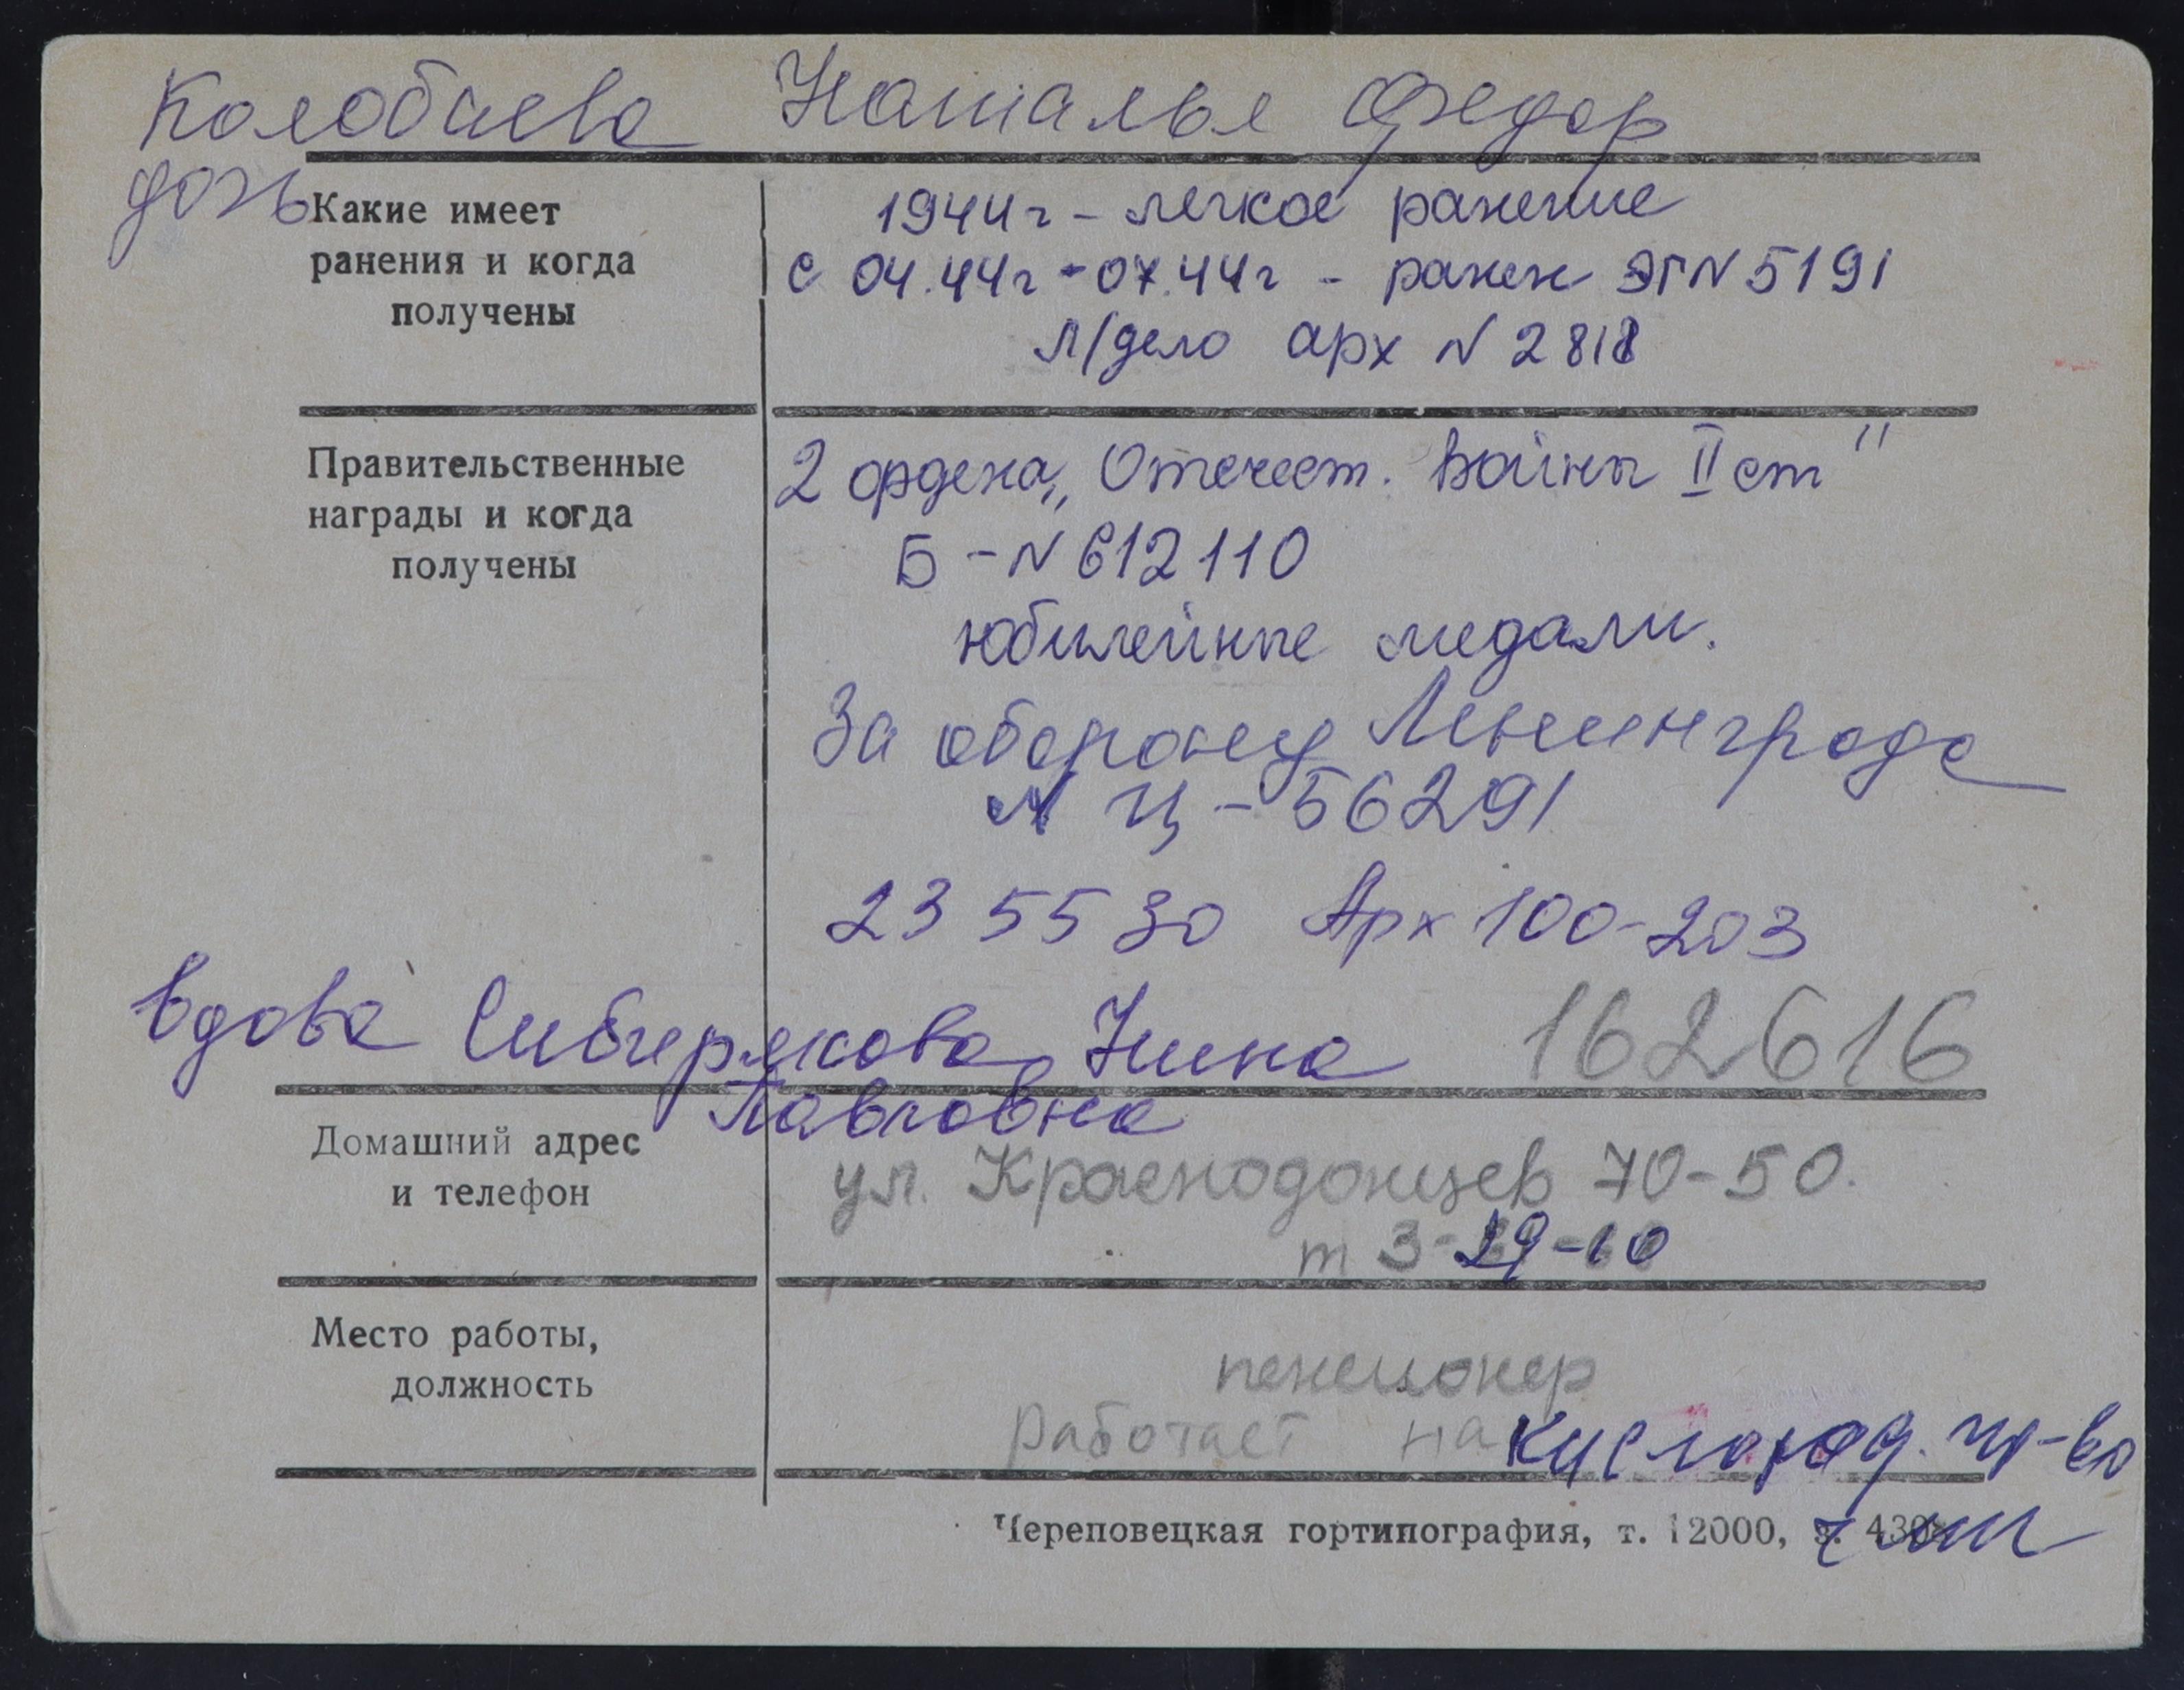 Колобаева Наталья Федор
дочь
Какие имеет
ранения и когда
получены
1944г – легкое ранение
с 04.44г - 07.44г – ранен ЭГ N 5191
Л/дело арх N 2818
Правительственные
награды и когда
получены
2 ордена „Отечест. Войны II ст"
Б – N 612110
юбилейные медали.
За оборону Ленинграда
N Ц – 56291
235530 Арх 100-203
162616
вдова Сибирякова Нина
Павловна
Домашний адрес
и телефон
ул. Краснодонцев 70-50.
т 3-29-10
Место работы,
должность
пенсионер
работает на кислород. пр-во
Череповецкая гортипография, т. 12000, з. 430